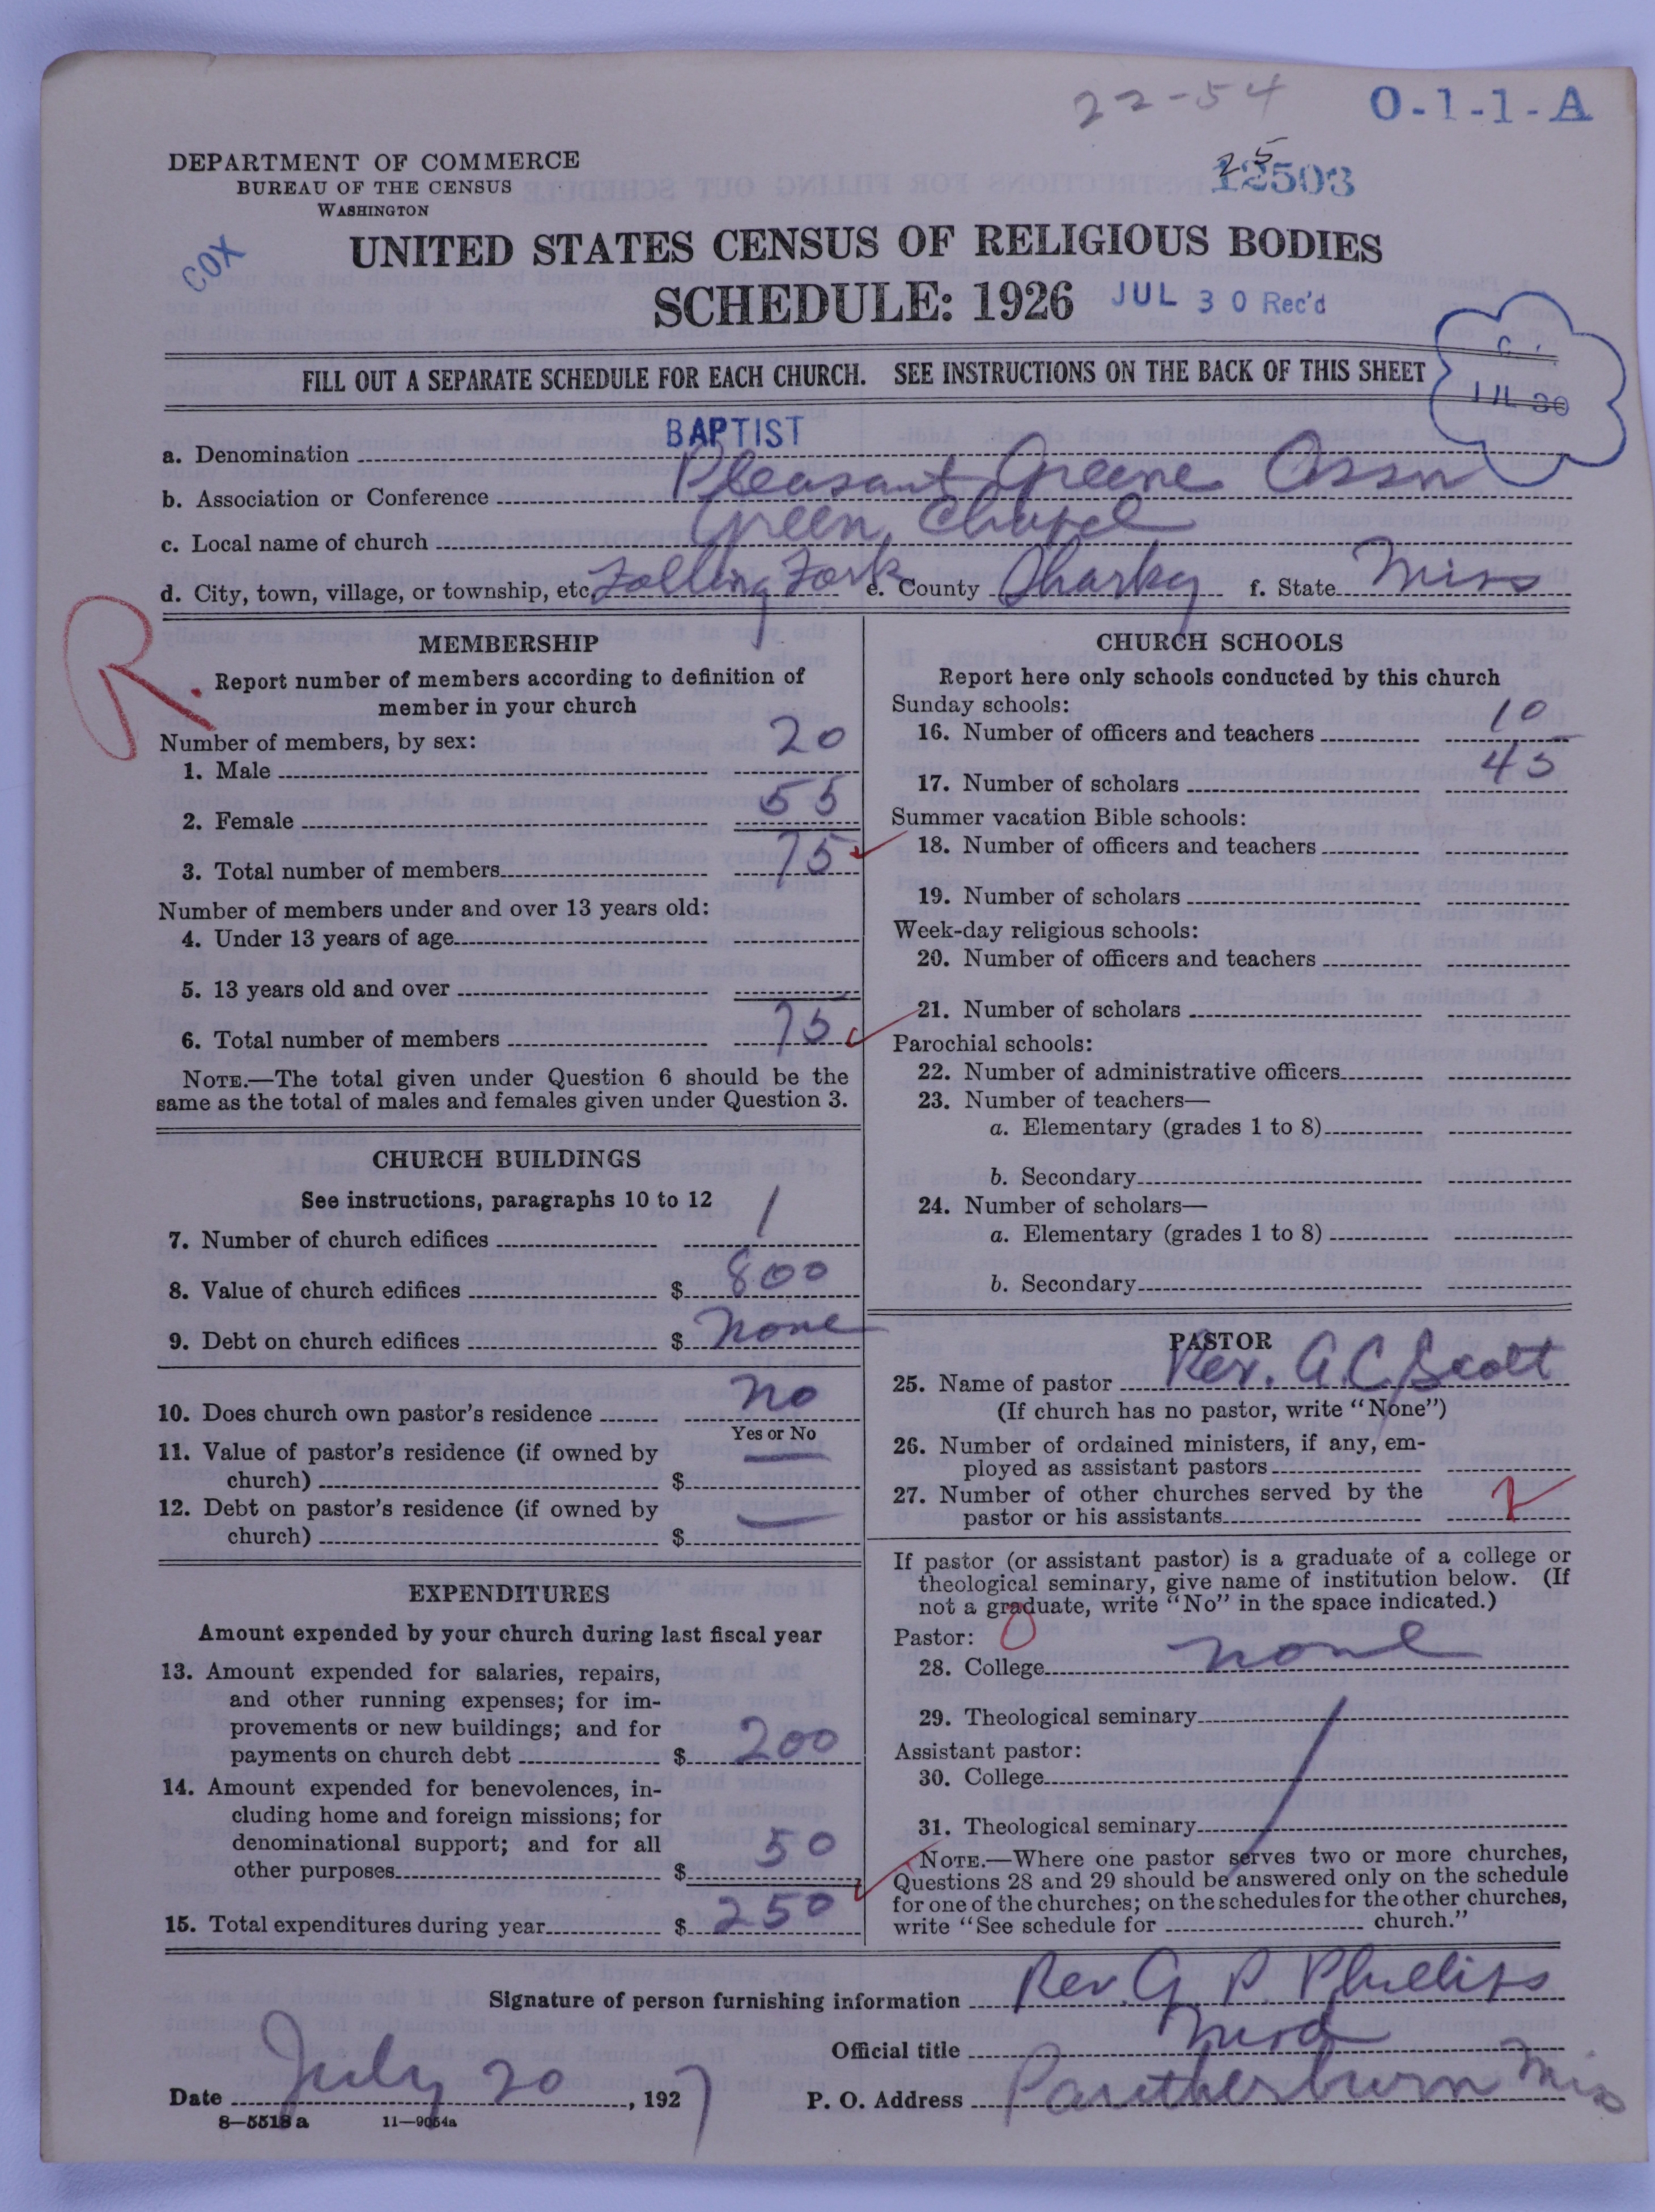 22-54
O-1-1-A
DEPARTMENT OF COMMERCE
BUREAU OF THE CENSUS
WASHINGTON
25
12503
COX
UNITED STATES CENSUS OF RELIGIOUS BODIES
SCHEDULE: 1926
JUL 30 Rec'd
FILL OUT A SEPARATE SCHEDULE FOR EACH CHURCH. SEE INSTRUCTIONS ON THE BACK OF THIS SHEET
JUL 30
a. Denomination BAPTIST
b. Association or Conference Pleasant Greene Assn
c. Local name of church Green Chapel
d. City, town, village, or township, etc. Rolling Fork e. County Sharky f. State Miss
R.
MEMBERSHIP
Report number of members according to definition of
member in your church
Number of members, by sex:
1. Male 20
2. Female 55
3. Total number of members 75
Number of members under and over 13 years old:
4. Under 13 years of age
5. 13 years old and over
6. Total number of members 75
NOTE.—The total given under Question 6 should be the
same as the total of males and females given under Question 3.
CHURCH BUILDINGS
See instructions, paragraphs 10 to 12
7. Number of church edifices 1
8. Value of church edifices $ 800
9. Debt on church edifices $ none
10. Does church own pastor's residence no
Yes or No
11. Value of pastor's residence (if owned by
church) $ —
12. Debt on pastor's residence (if owned by
church) $ —
EXPENDITURES
Amount expended by your church during last fiscal year
13. Amount expended for salaries, repairs,
and other running expenses; for im-
provements or new buildings; and for
payments on church debt $ 200
14. Amount expended for benevolences, in-
cluding home and foreign missions; for
denominational support; and for all
other purposes $ 50
15. Total expenditures during year $ 250
CHURCH SCHOOLS
Report here only schools conducted by this church
Sunday schools:
16. Number of officers and teachers 10
17. Number of scholars 45
Summer vacation Bible schools:
18. Number of officers and teachers
19. Number of scholars
Week-day religious schools:
20. Number of officers and teachers
21. Number of scholars
Parochial schools:
22. Number of administrative officers
23. Number of teachers—
a. Elementary (grades 1 to 8)
b. Secondary
24. Number of scholars—
a. Elementary (grades 1 to 8)
b. Secondary
PASTOR
25. Name of pastor Rev. A. C. Scott
(If church has no pastor, write "None")
26. Number of ordained ministers, if any, em-
ployed as assistant pastors
27. Number of other churches served by the
pastor or his assistants
If pastor (or assistant pastor) is a graduate of a college or
theological seminary, give name of institution below. (If
not a graduate, write "No" in the space indicated.)
Pastor: 0
28. College none
29. Theological seminary
Assistant pastor:
30. College
31. Theological seminary
NOTE.—Where one pastor serves two or more churches,
Questions 28 and 29 should be answered only on the schedule
for one of the churches; on the schedules for the other churches,
write "See schedule for church."
Signature of person furnishing information Rev. G. P. Phillips
Official title Mod
Date July 20, 1927 P. O. Address Pantherburn Miss
8—5518 a 11—9054a